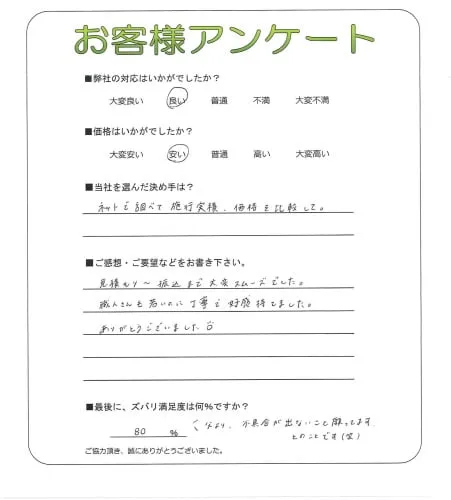 お客様アンケート
■弊社の対応はいかがでしたか？
大変良い 良い 普通 不満 大変不満
■価格はいかがでしたか？
大変安い 安い 普通 高い 大変高い
■当社を選んだ決め手は？
ネットで調べて施行実積、価格を比較して。
■ご感想・ご要望などをお書き下さい。
見積もり～振込まで大変スムーズでした。
職人さんも若いのに丁寧で好感持てました。
ありがとうございました
■最後に、ズバリ満足度は何%ですか？
80 % なより、不具合が出ないこと願ってます。
とのことです(笑)
ご協力頂き、誠にありがとうございました。